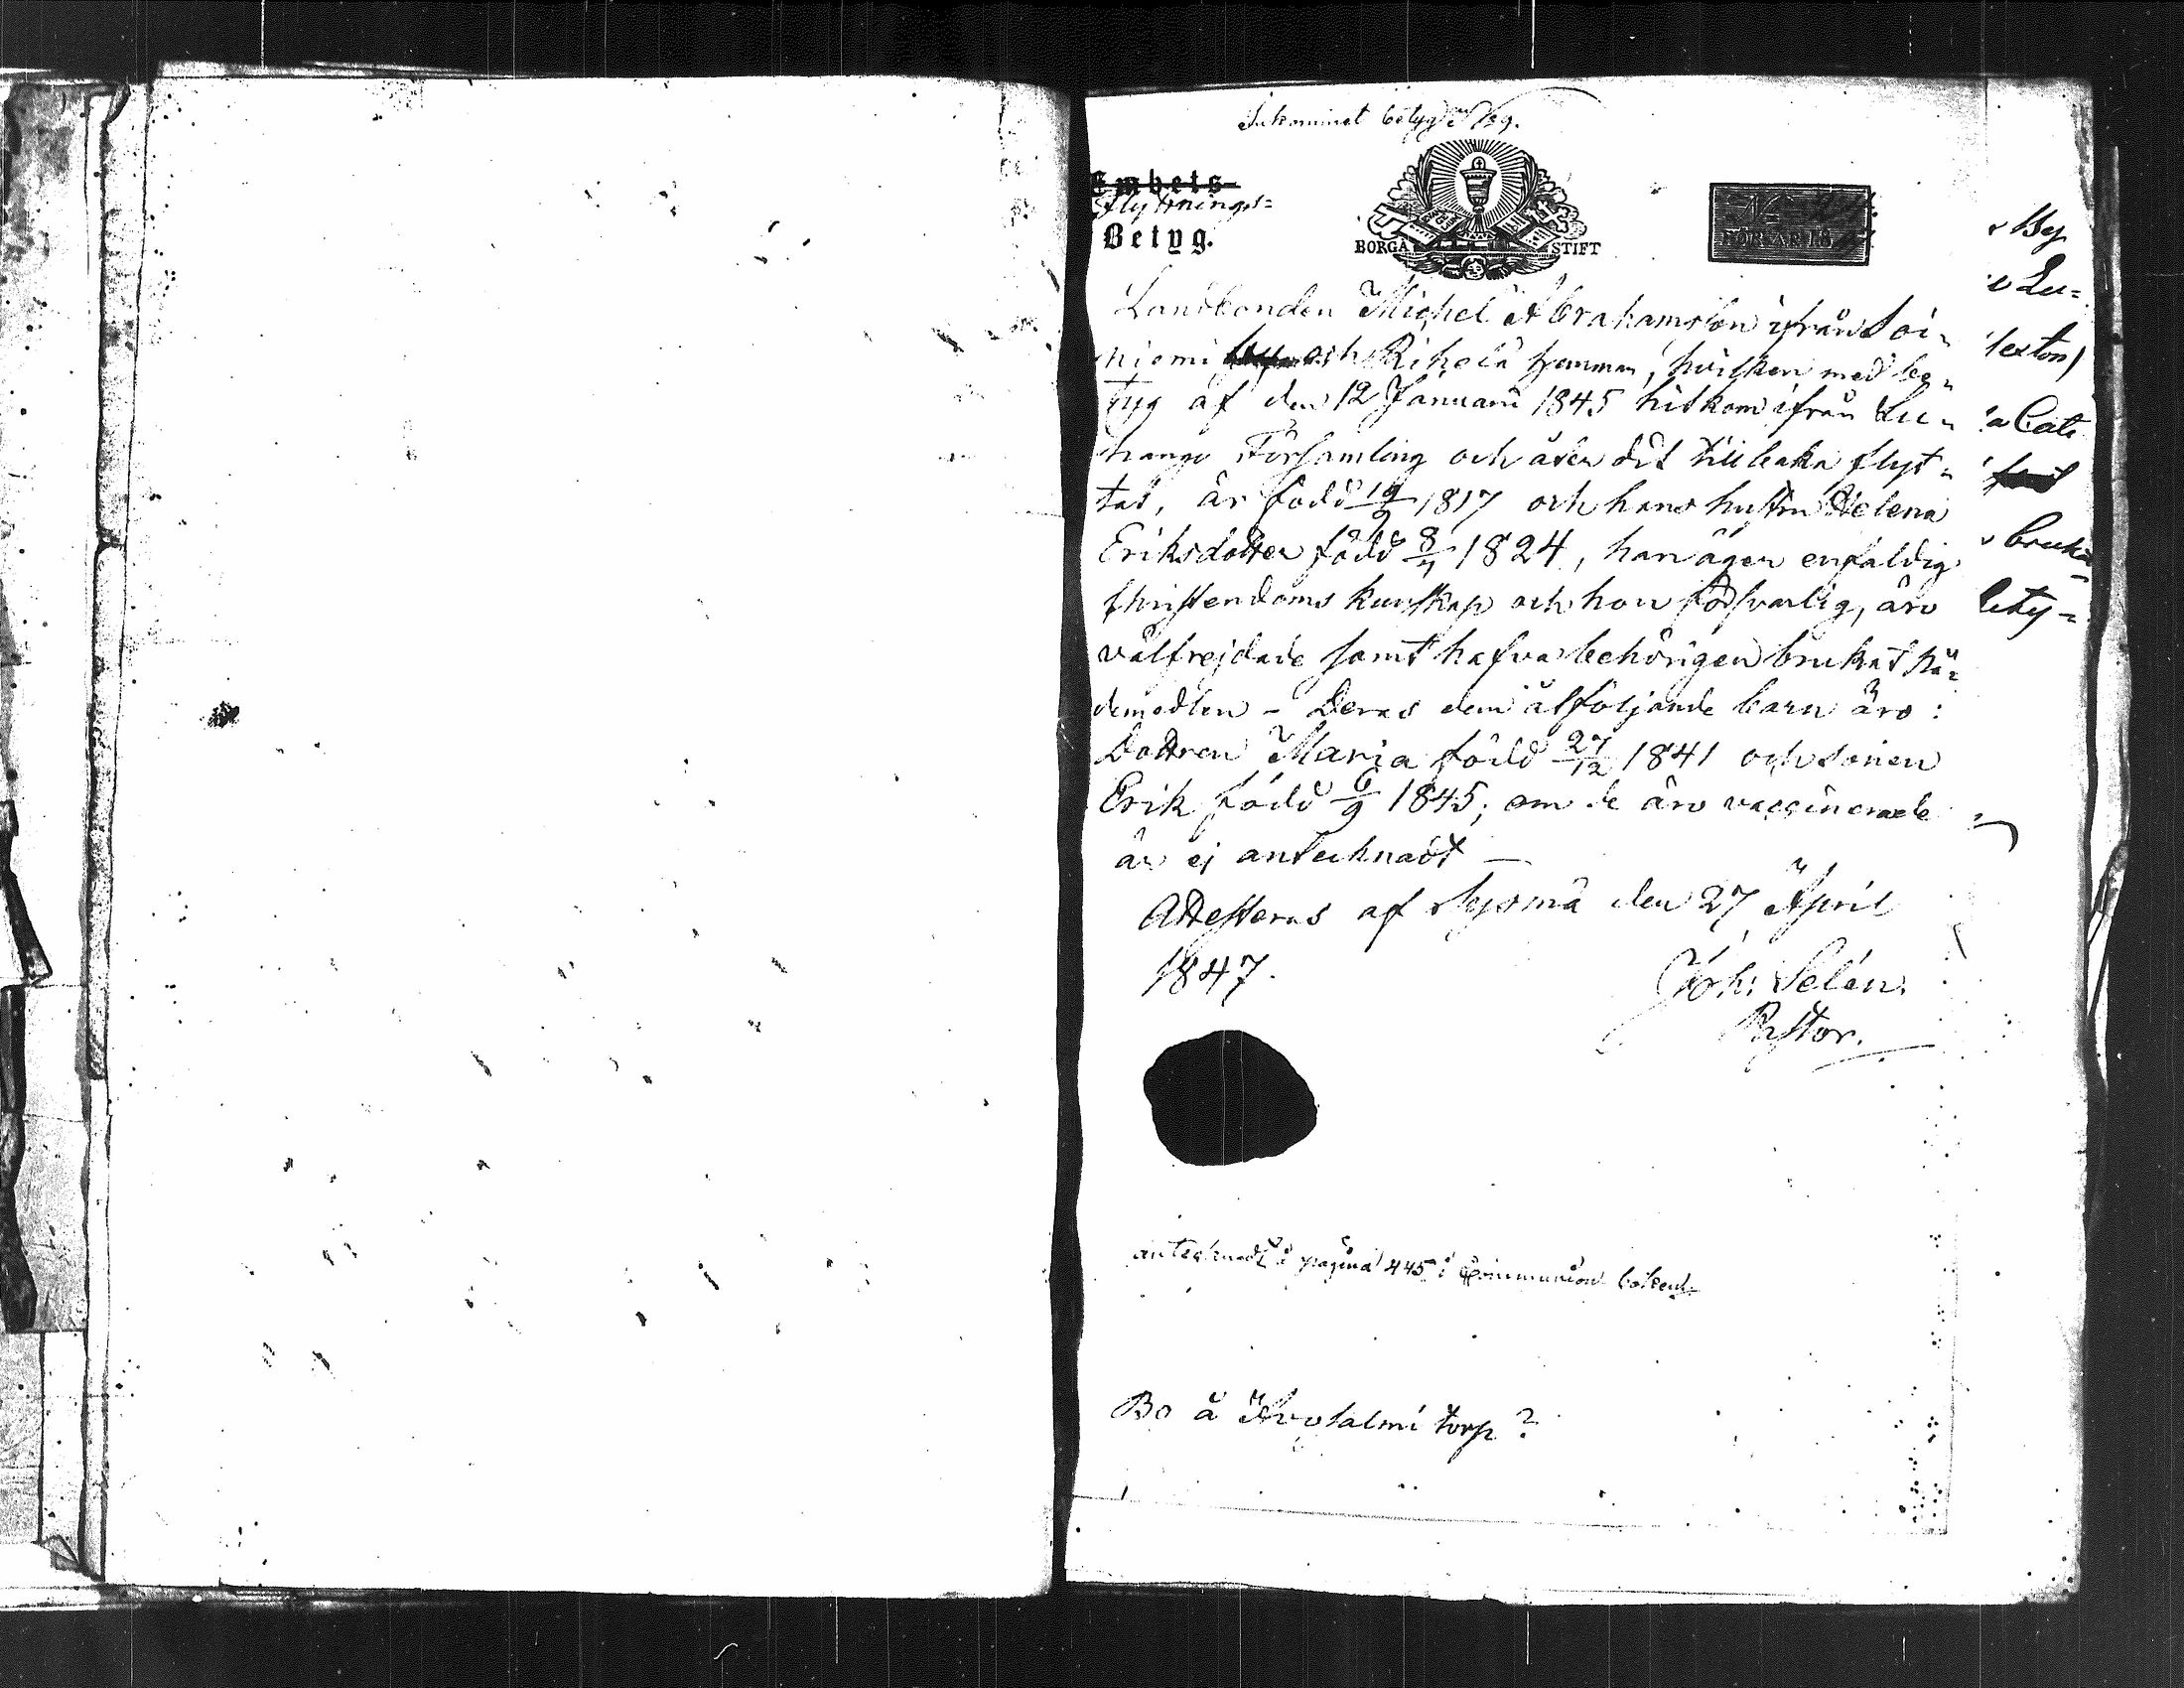 Inkommet betyg N 29.
Embets-
flyttnings=
Betyg.
BORGÅ STIFT
N
FÖR ÅR 18
Landbonden Michel Abrahamsson ifrån Soi=
niemi och Rihelä hemman, hvilken med be=
tyg af den 12 Januarii 1845 hitkom ifrån Lu=
hango Församling och åter dit tillbaka flyt=
tat, är född 19/9 1817 och hans hustru Helena
Eriksdotter född 8/4 1824, han äger enfaldig
Christendoms kunskap och hon försvarlig, äro
välfrejdade samt hafva behörigen brukat nå=
demedlen – Deras dem åtföljande barn äro:
Dottren Maria född 27/12 1841 och sonen
Erik född 6/9 1845; om de äro vaccinerade
är ej antecknadt –
Attesteras af Sysmä den 27 April
1847.
Joh: Selén.
Pastor.
antecknadt å pagina 445 i Communion boken.
Bo å salmi torp?
By
Lu=
sexton)
a Cate
bruka
bety=